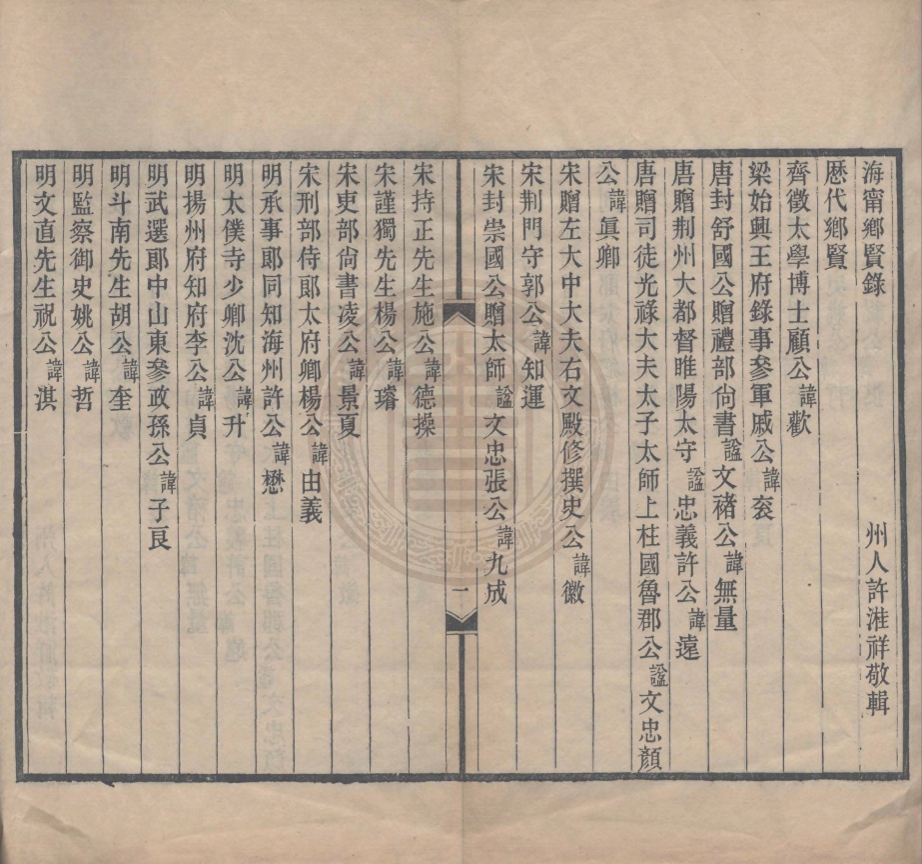 海甯鄉賢錄
州人許溎祥敬輯
歷代鄉賢
齊徵太學博士顧公諱歡
梁始興王府錄事參軍戚公諱袞
唐封舒國公贈禮部尙書諡文褚公諱無量
唐贈荆州大都督睢陽太守諡忠義許公諱遠
唐贈司徒光祿大夫太子太師上柱國魯郡公諡文忠顏
公諱眞卿
宋贈左大中大夫右文殿修撰史公諱徽
宋荆門守郭公諱知運
宋封崇國公贈太師諡文忠張公諱九成
一
宋持正先生施公諱德操
宋謹獨先生楊公諱璿
宋吏部尙書凌公諱景夏
宋刑部侍郞太府卿楊公諱由義
明承事郞同知海州許公諱懋
明太僕寺少卿沈公諱升
明揚州府知府李公諱貞
明武選郞中山東參政孫公諱子良
明斗南先生胡公諱奎
明監察御史姚公諱哲
明文直先生祝公諱淇